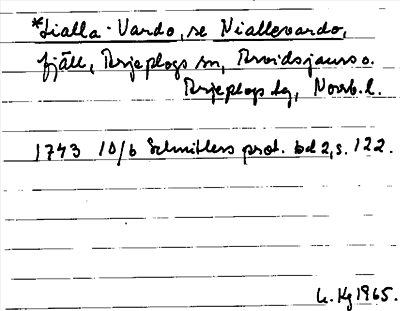 *Lialla-Vardo, se Niallevardo,
fjäll, Arjeplogs sn, Arvidsjaurs o.
Arjeplogs tg, Norrb. l.
1743 10/6 Schnitlers prot. bd 2, s. 122.
L. Hg 1965.